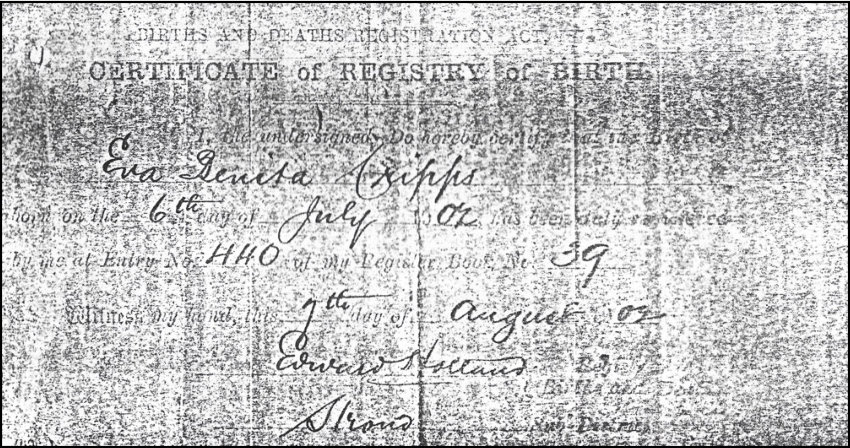 BIRTHS AND DEATHS REGISTRATION ACT
CERTIFICATE of REGISTRY of BIRTH
I, the undersigned, Do hereby certify that the Birth of
Eva Benita Cripps
born on the 6th day of July 1902, has been duly registered
by me at Entry No. 440 of my Register Book, No. 39
Witness my hand, this 7th day of August 1902
Edward Holland
Births and
Stroud Sub-District